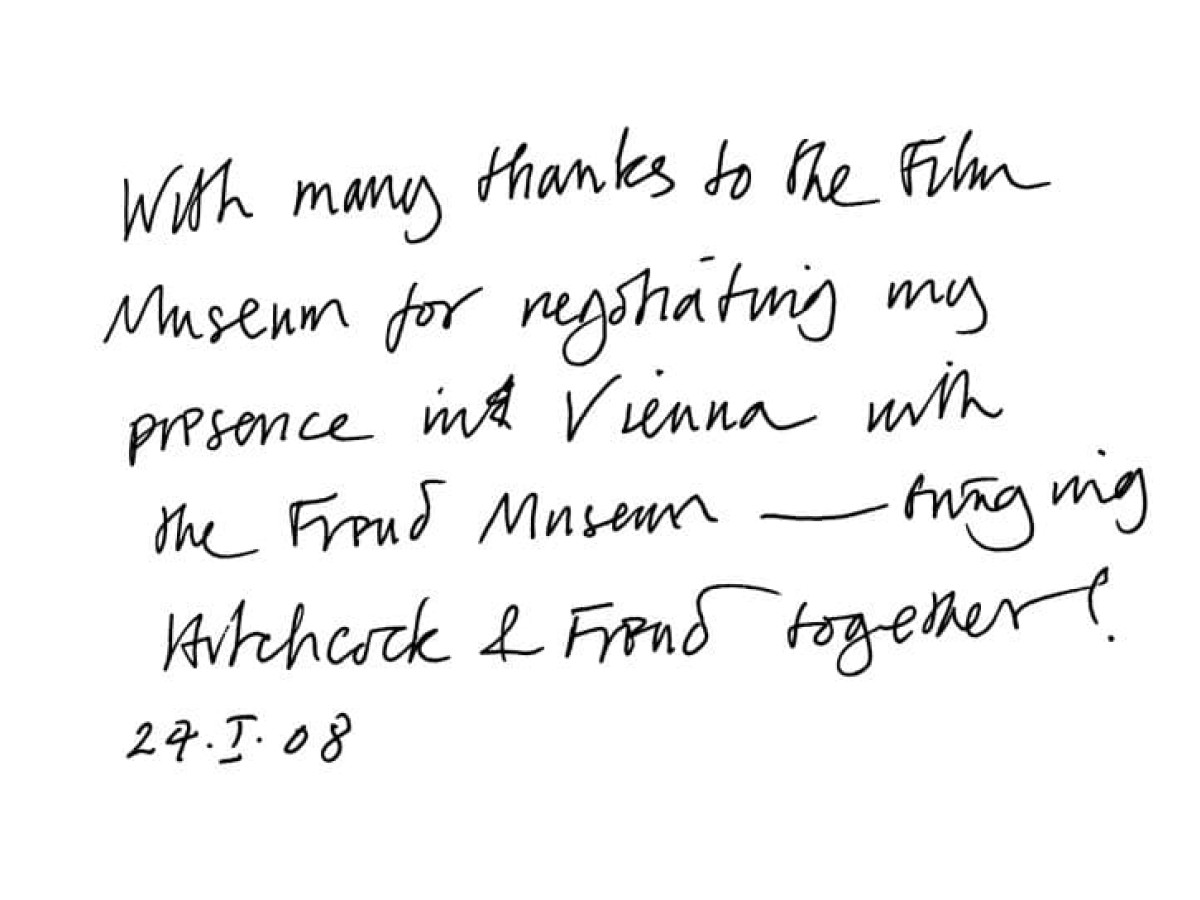 With many thanks to the Film
Museum for negotiating my
presence in Vienna with
the Freud Museum — bringing
Hitchcock & Freud together!
24.I.08